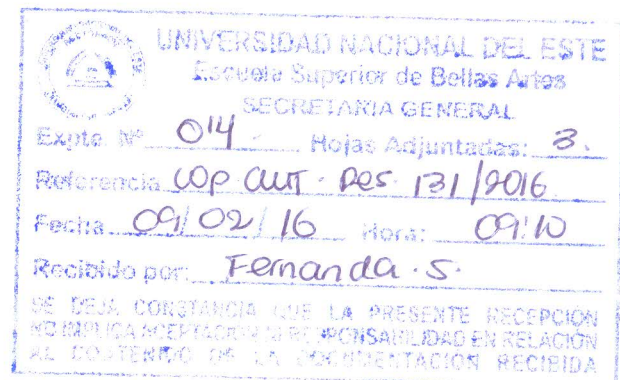 UNIVERSIDAD NACIONAL DEL ESTE
Escuela Superior de Bellas Artes
SECRETARIA GENERAL
Expte. Nº 014 Hojas Adjuntadas: 3.
Referencia Res. 131/2016
Fecha 09/02/16 Hora: 09:10
Recibido por: Fernanda. S.
SE DEJA CONSTANCIA QUE LA PRESENTE RECEPCION
NO IMPLICA ACEPTACION NI RESPONSABILIDAD EN RELACION
AL CONTENIDO DE LA DOCUMENTACION RECIBIDA